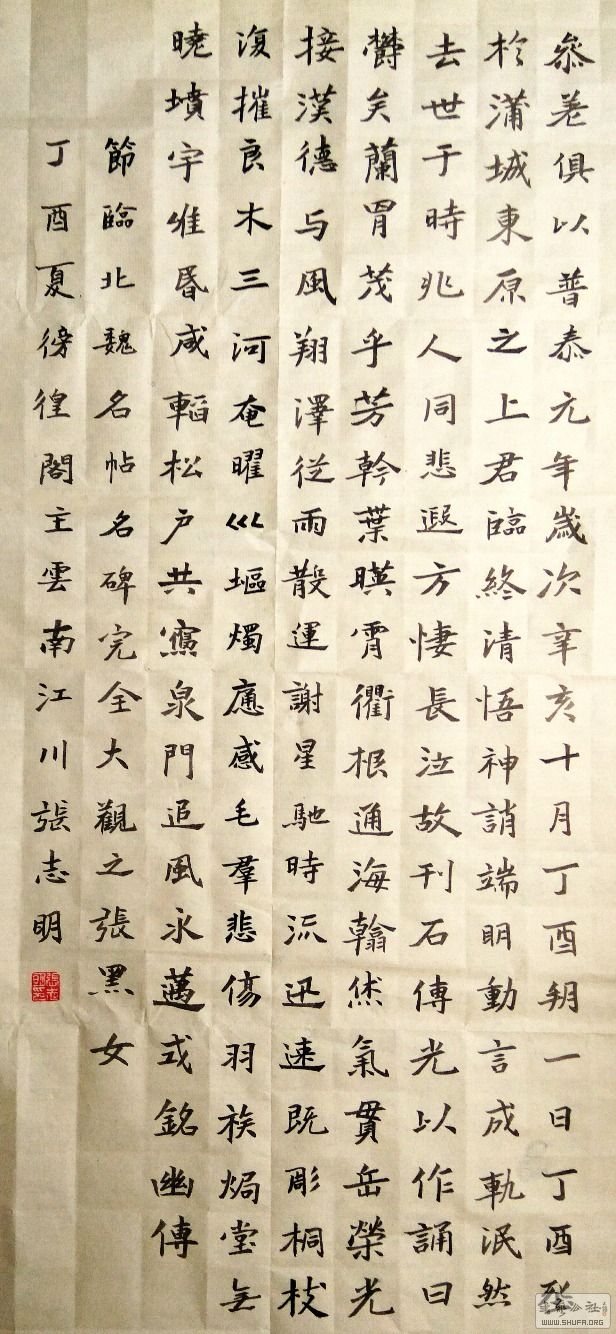 叅差俱以普泰元年歲次辛亥十月丁酉朔一日丁酉塟
於蒲城東原之上君臨終清悟神誚端明動言成軌泯然
去世于時兆人同悲遐方悽長泣故刊石傳光以作誦曰
欝矣蘭胃茂乎芳幹葉暎霄衢根通海翰烋氣貫岳榮光
接漢德与風翔澤從雨散運謝星馳時流迅速既彫桐枝
復摧良木三河奄曜巛塸燭應感毛羣悲傷羽族焗堂无
曉墳宇唯昏咸韜松戶共寫泉門追風永邁式銘幽傳
節臨北魏名帖名碑完全大觀之張黑女
丁酉夏徬徨閣主雲南江川張志明
WWW.SHUFA.ORG